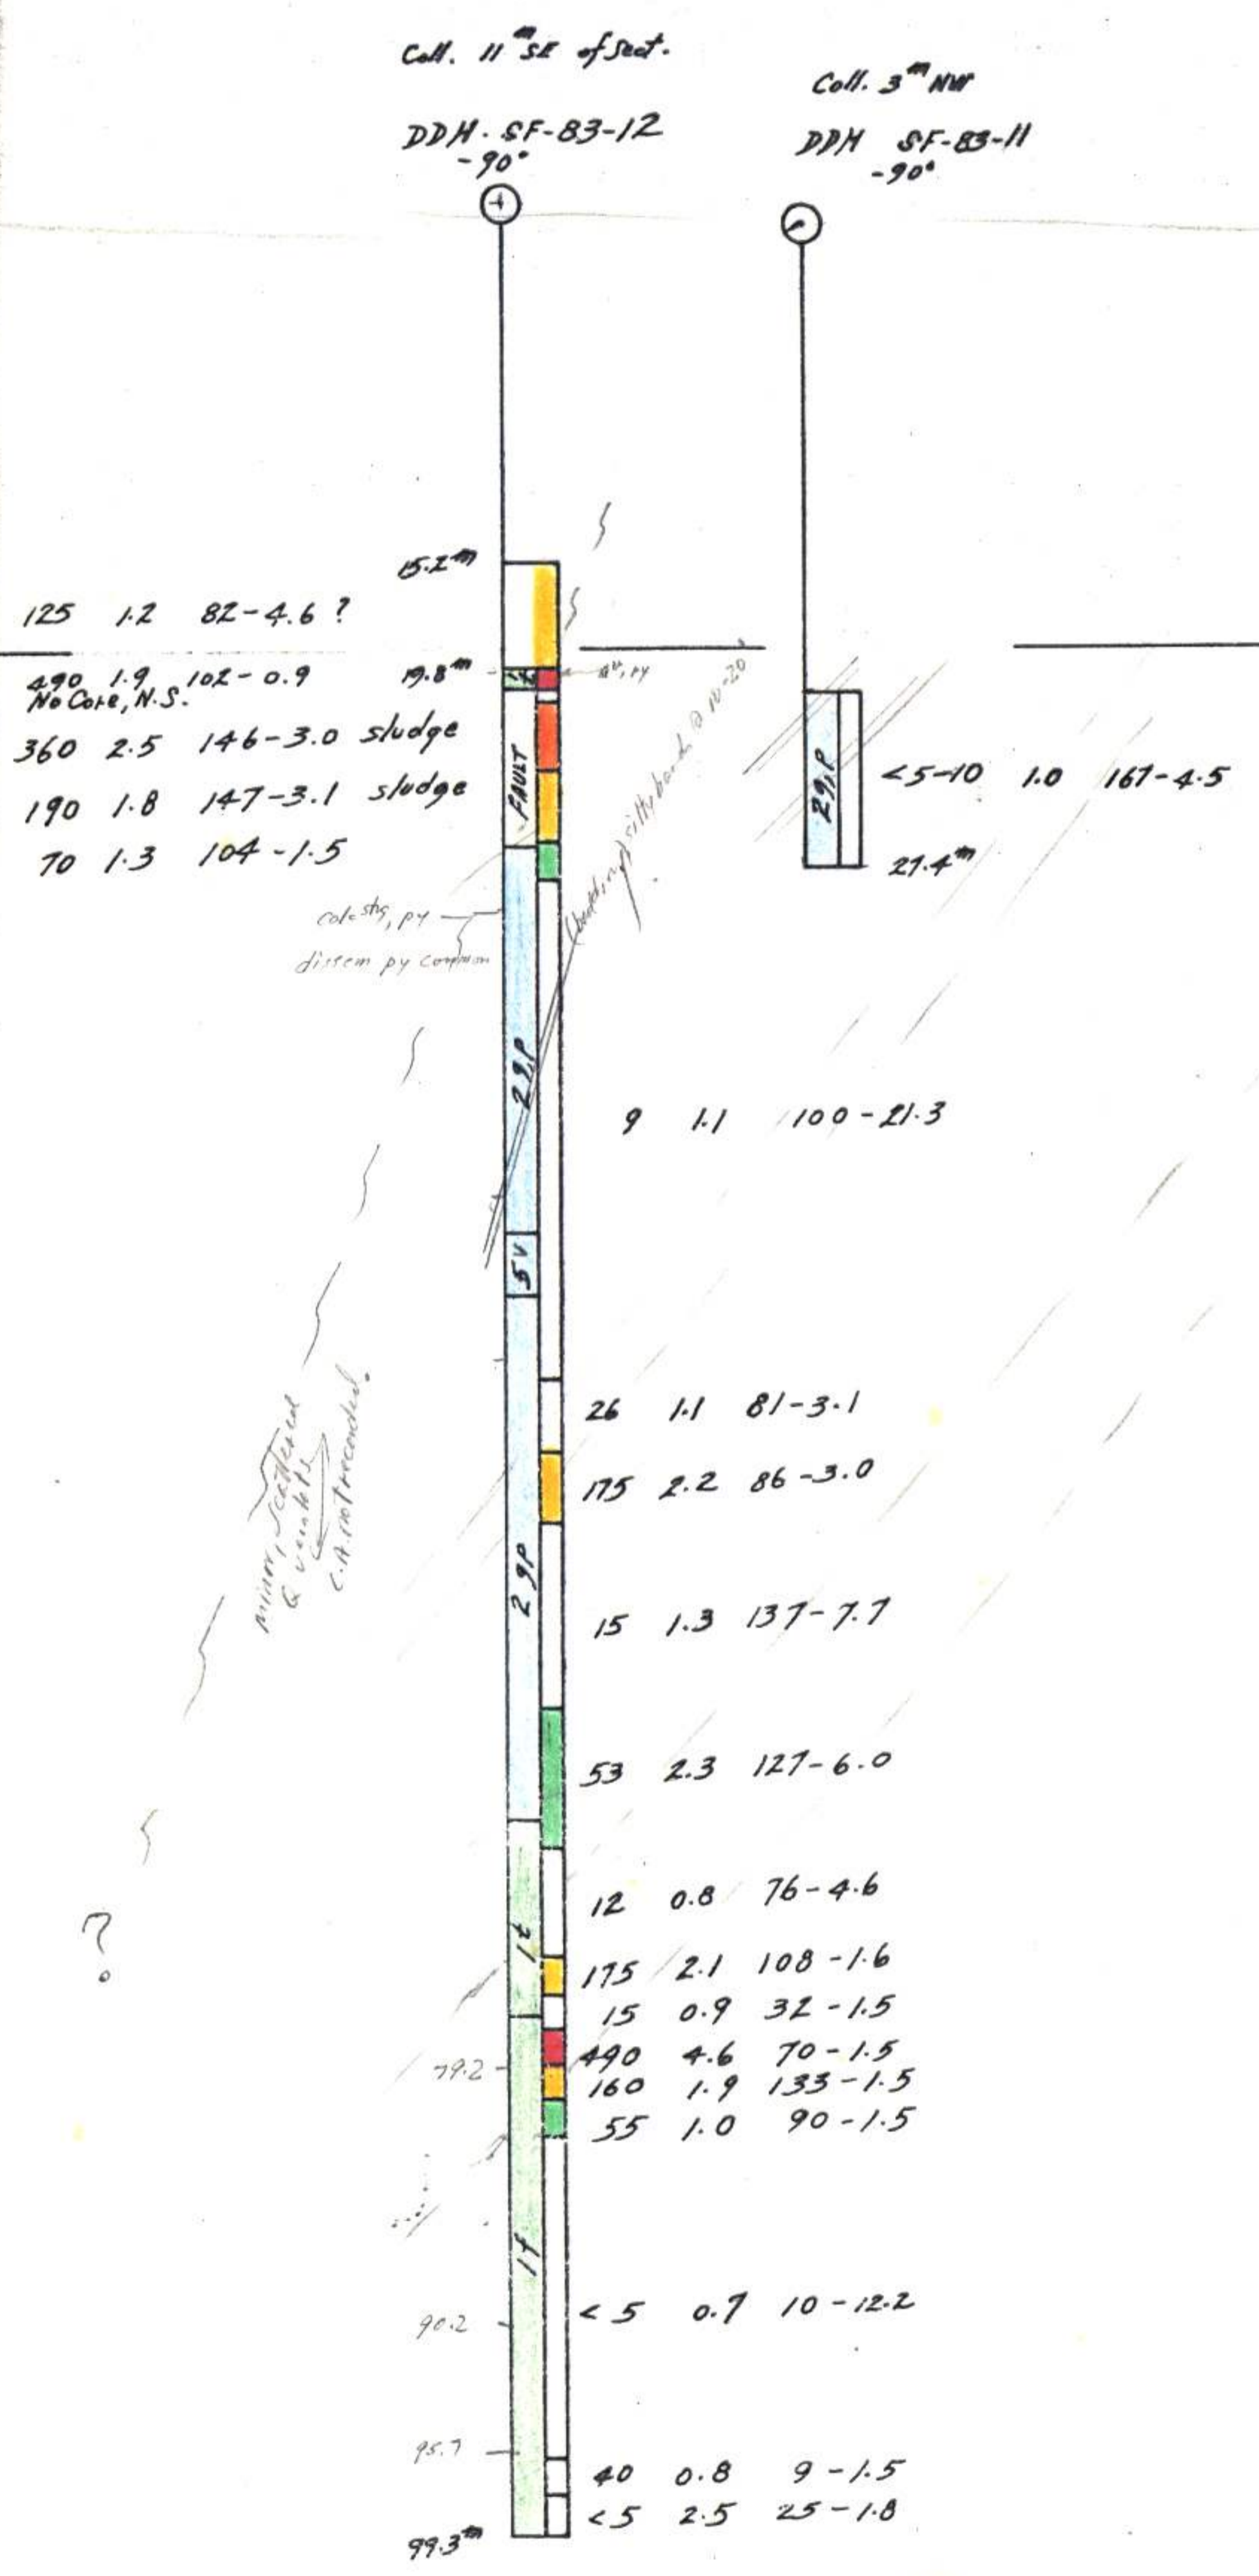 Coll. 11 m SE of Sect.
DDH. SF-83-12
-90°
Coll. 3 m NW
DDH SF-83-11
-90°
15.2 m
125 1.2 82-4.6 ?
490 1.9 102-0.9
19.8 m
No Core, N.S.
360 2.5 146-3.0 sludge
190 1.8 147-3.1 sludge
70 1.3 104-1.5
FAULT
py
@ 10-20
29,P
<5-10 1.0 167-4.5
27.4 m
py
dissem py common
29,P
9 1.1 100-21.3
5V
26 1.1 81-3.1
175 2.2 86-3.0
minor, scattered
Q veinlets
C.A. not recorded.
29P
15 1.3 137-7.7
53 2.3 127-6.0
12 0.8 76-4.6
1t
?
175 2.1 108-1.6
15 0.9 32-1.5
490 4.6 70-1.5
79.2
160 1.9 133-1.5
55 1.0 90-1.5
1f
<5 0.7 10-12.2
90.2
95.7
40 0.8 9-1.5
<5 2.5 25-1.8
99.3 m